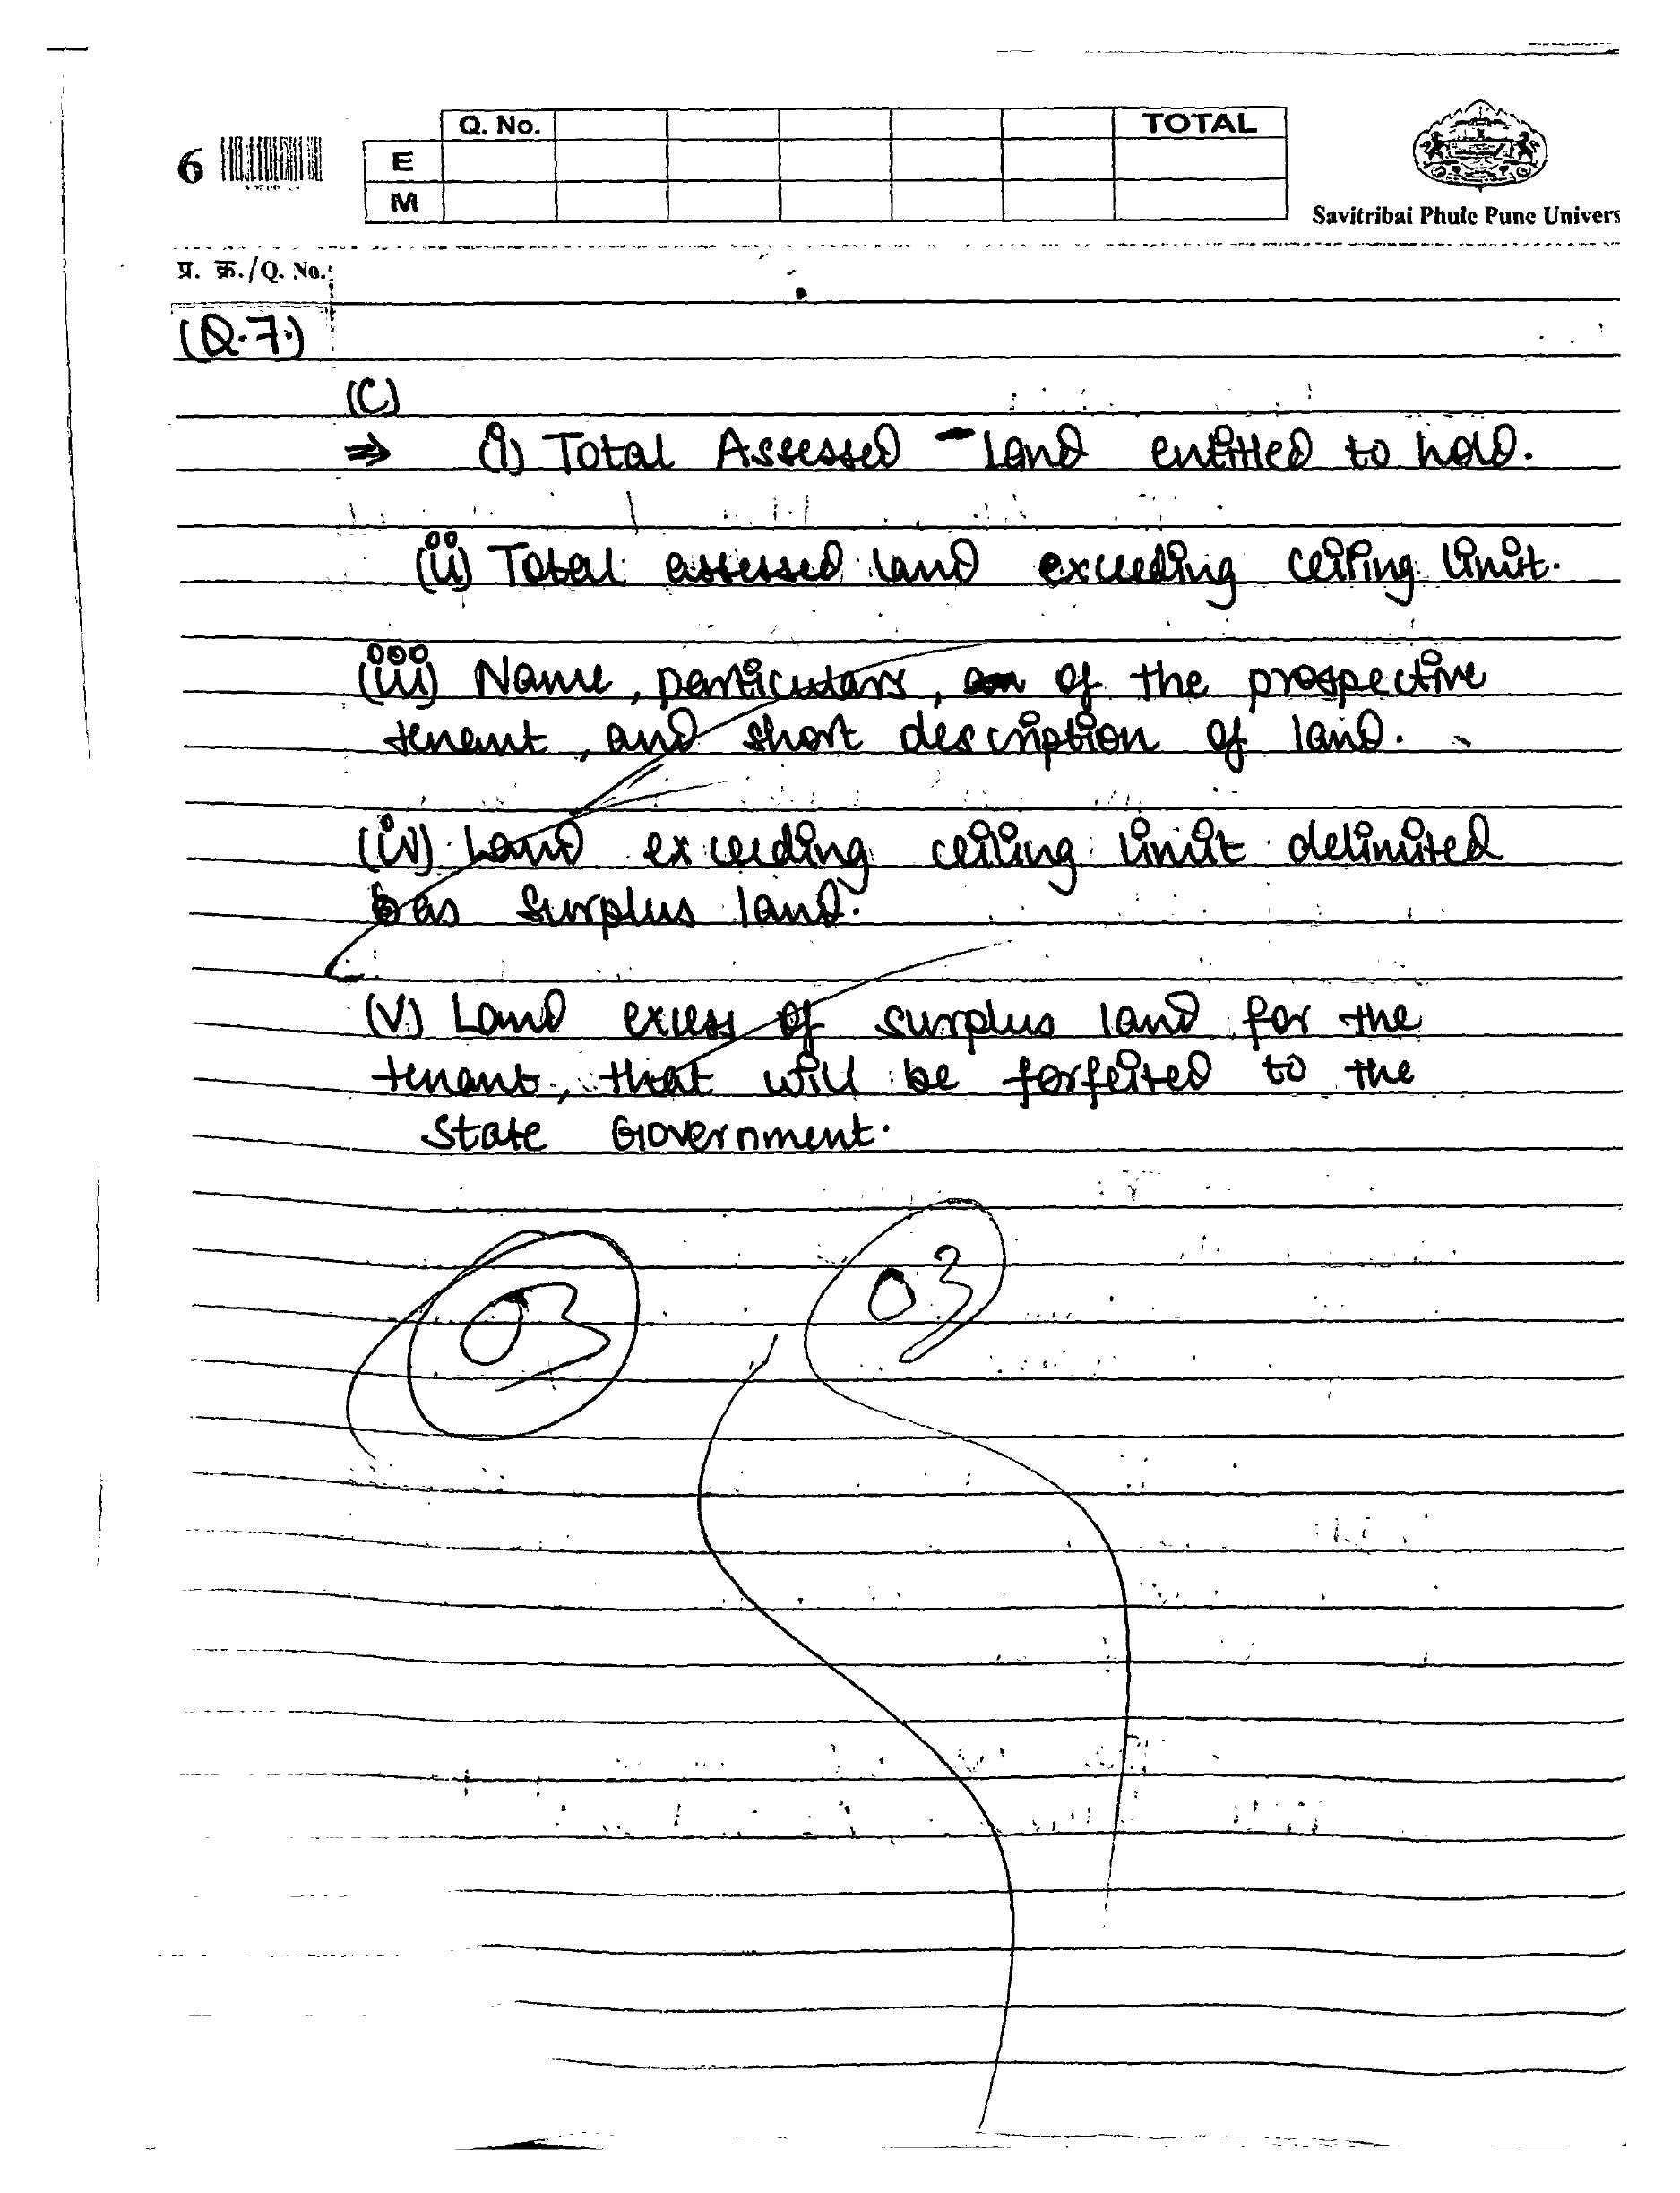 6
Q. No. TOTAL
E
M
Savitribai Phule Pune Univers
प्र. क्र./Q. No.
(Q.7.)
(C)
⇒ (i) Total Assessed land entitled to hold.
(ii) Total assessed land exceeding ceiling limit.
(iii) Name, particulars, of the prospective
tenant, and short description of land.
(iv) Land exceeding ceiling limit delimited
as surplus land.
(v) Land excess of surplus land for the
tenant, that will be forfeited to the
State Government.
03 03